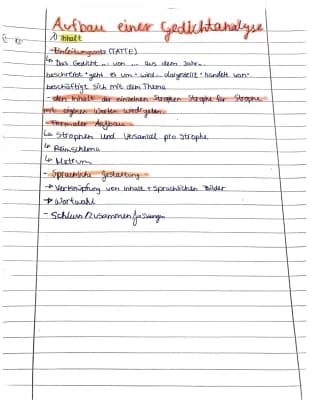 Aufbau einer Gedichtanalyse
1) Inhalt
- Einleitungssatz (TATTE)
↳ Das Gedicht ... von ... aus dem Jahr..
beschreibt " geht es um " wird... dargestellt " handelt von "
beschäftigt sich mit dem Thema
- den Inhalt der einzelnen Strophen Strophe für Strophe
mit eigenen Worten wiedergeben
- Formaler Aufbau
↳ Strophen und Versanzahl pro Strophe
↳ Reimschema
↳ Metrum
- Sprachliche Gestaltung
→ Verknüpfung von Inhalt + Sprachlichen Bilder
→ Wortwahl
- Schluss/Zusammenfassungen